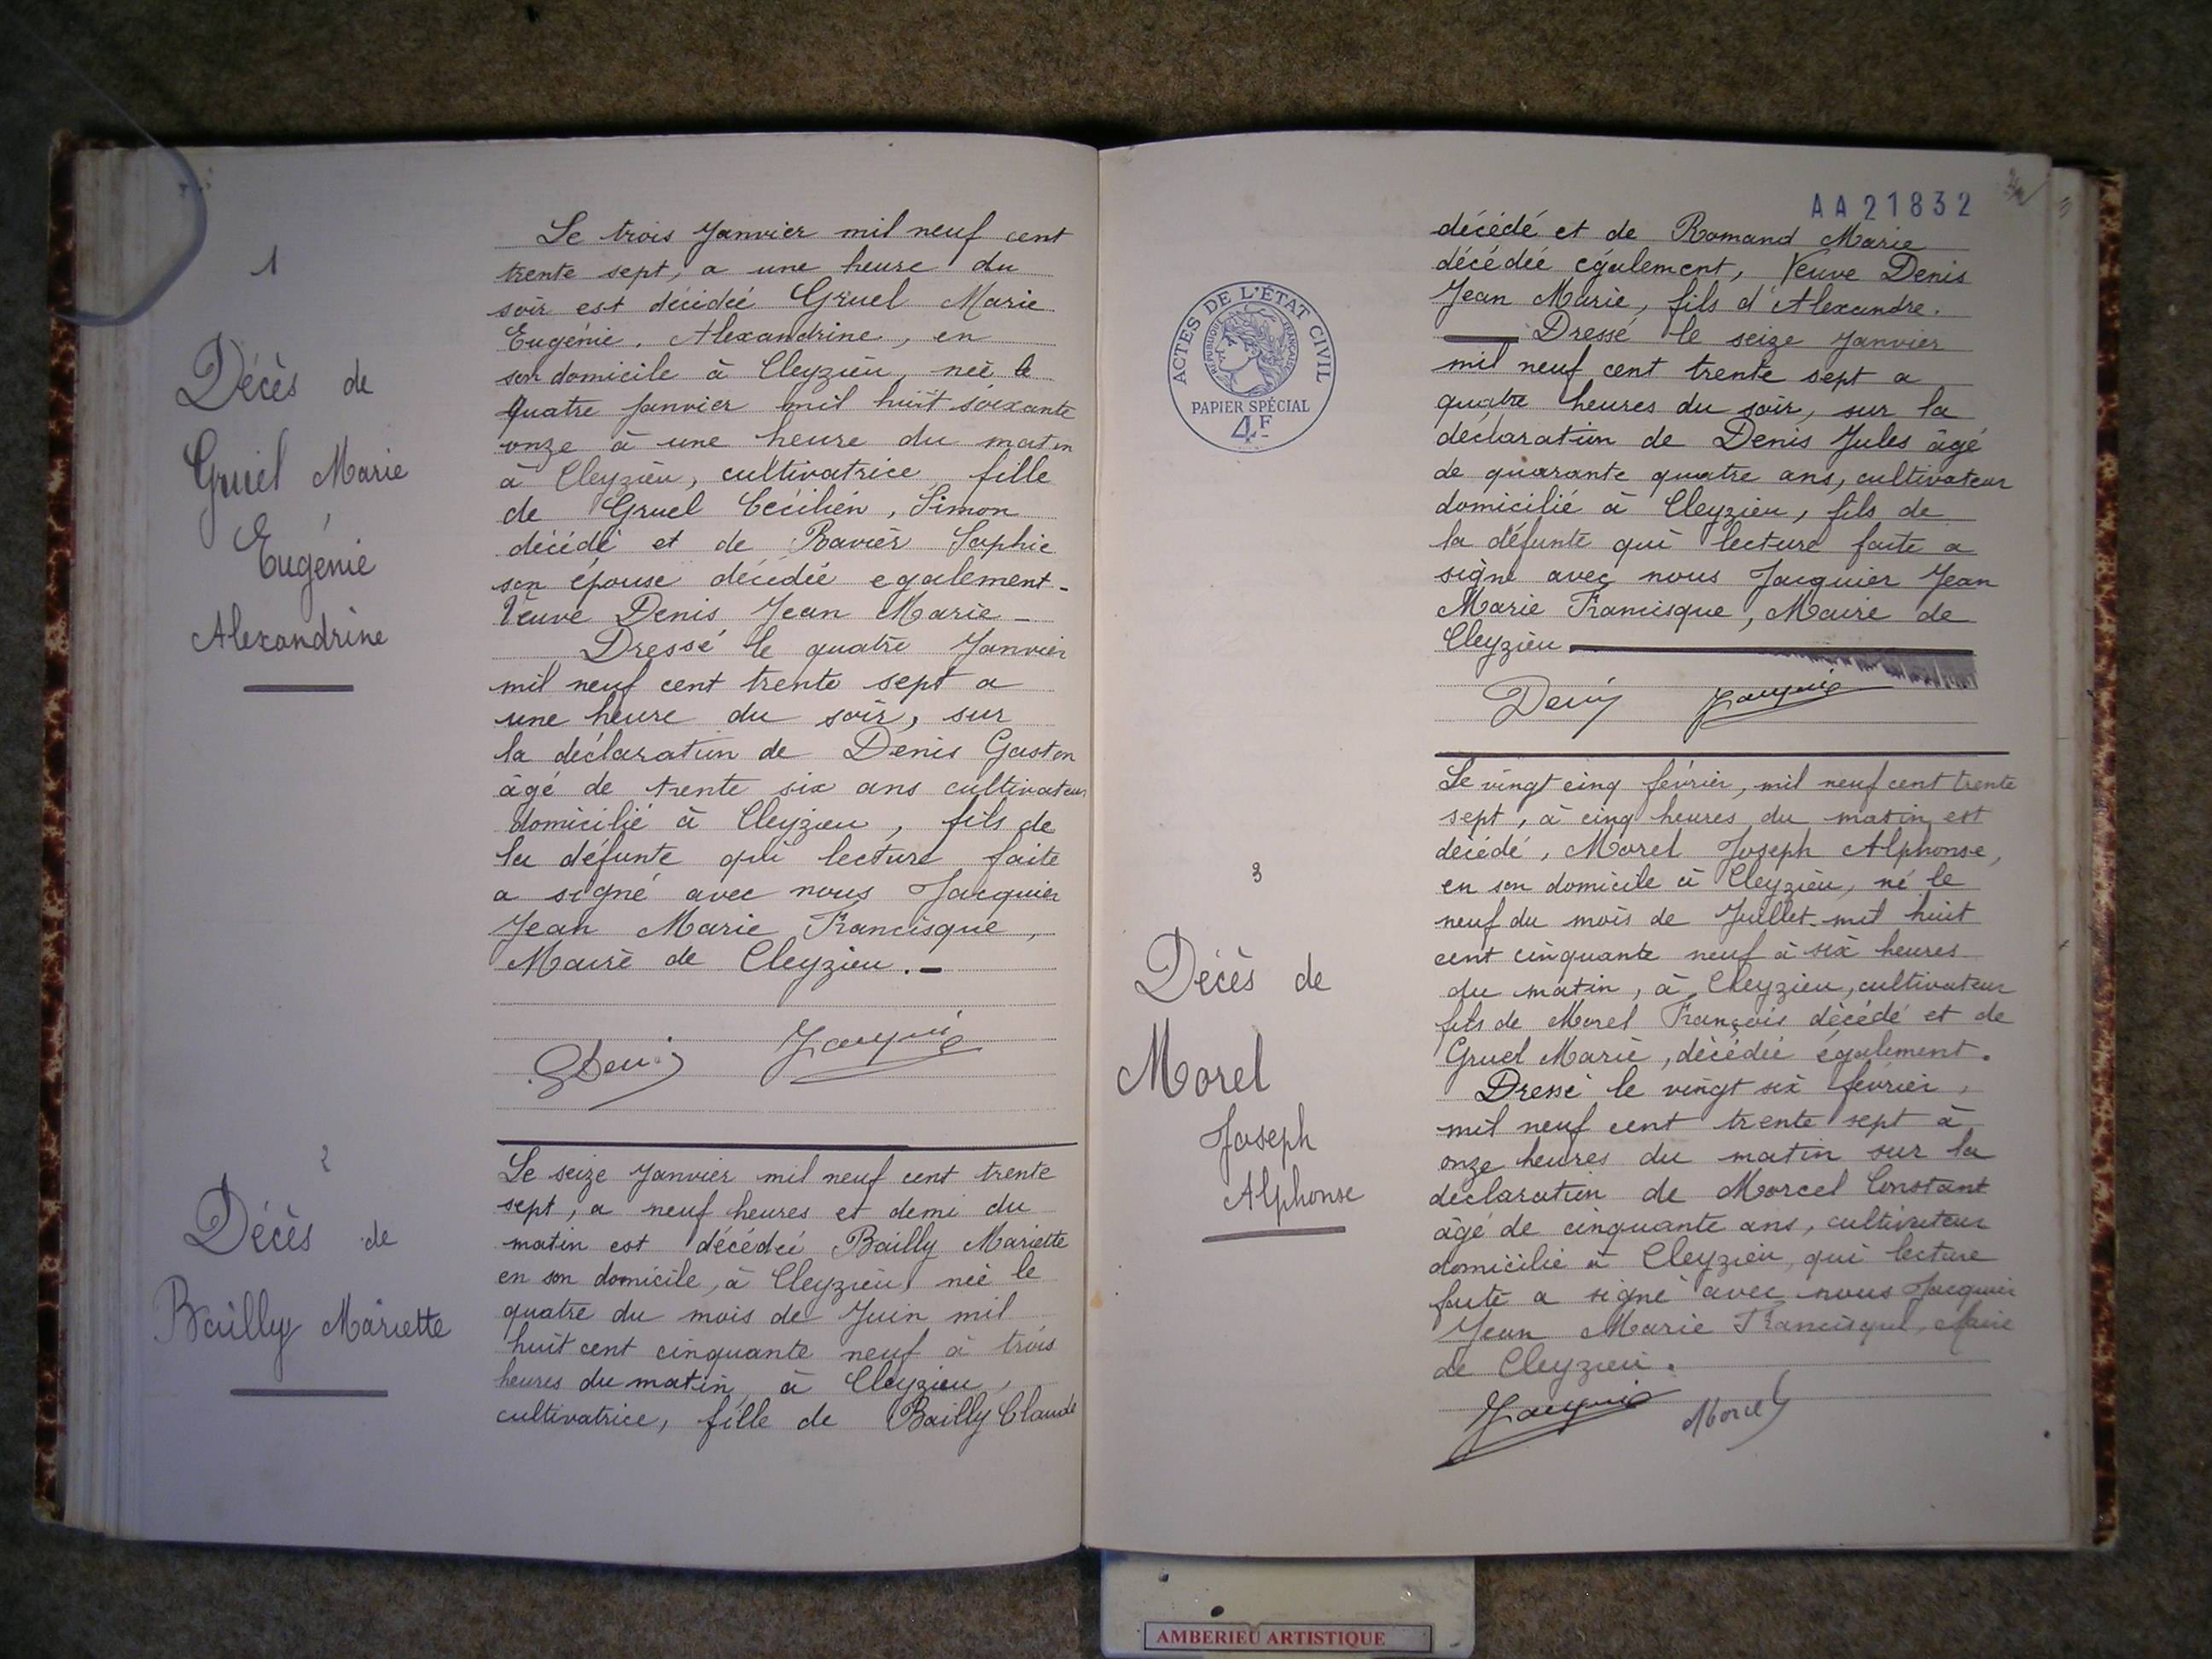 1
Décès de
Gruel Marie
Eugénie
Alexandrine
Le trois Janvier mil neuf cent
trente sept, a une heure du
soir est décédée Gruel Marie
Eugénie, Alexandrine, en
son domicile à Cleyzieu, née le
quatre Janvier mil huit soixante
onze à une heure du matin
à Cleyzieu, cultivatrice fille
de Gruel Cécilien, Simon
décédé et de Ravier Sophie
son épouse décédée egalement -
Veuve Denis Jean Marie -
Dressé le quatre Janvier
mil neuf cent trente sept a
une heure du soir, sur
la déclaration de Denis Gaston
âgé de trente six ans cultivateur
domicilié à Cleyzieu, fils de
la défunte qui lecture faite
a signé avec nous Jacquier
Jean Marie Francisque,
Maire de Cleyzieu. -
G Denis Jacquier
2
Décès de
Bailly Mariette
Le seize Janvier mil neuf cent trente
sept, a neuf heures et demi du
matin est décédée Bailly Mariette
en son domicile, à Cleyzieu, née le
quatre du mois de Juin mil
huit cent cinquante neuf à trois
heures du matin à Cleyzieu,
cultivatrice, fille de Bailly Claude
AA21832
décédé et de Romand Marie
décédée également, Veuve Denis
Jean Marie, fils d'Alexandre.
Dressé le seize Janvier
mil neuf cent trente sept a
quatre heures du soir, sur la
déclaration de Denis Jules âgé
de quarante quatre ans, cultivateur
domicilié à Cleyzieu, fils de
la défunte qui lecture faite a
signé avec nous Jacquier Jean
Marie Francisque, Maire de
Cleyzieu
Denis Jacquier
ACTES DE L'ÉTAT CIVIL
RÉPUBLIQUE FRANÇAISE
PAPIER SPÉCIAL
4F
3
Décès de
Morel
Joseph
Alphonse
Le vingt cinq février, mil neuf cent trente
sept, à cinq heures du matin est
décédé, Morel Joseph Alphonse,
en son domicile à Cleyzieu, né le
neuf du mois de Juillet mil huit
cent cinquante neuf à six heures
du matin, à Cleyzieu, cultivateur
fils de Morel François décédé et de
Gruel Marie, décédée également.
Dressé le vingt six février,
mil neuf cent trente sept à
onze heures du matin sur la
déclaration de Morcel Constant
âgé de cinquante ans, cultivateur
domicilié à Cleyzieu, qui lecture
faite a signé avec nous Jacquier
Jean Marie Francisque, Maire
de Cleyzieu.
Jacquier Morel
AMBERIEU ARTISTIQUE